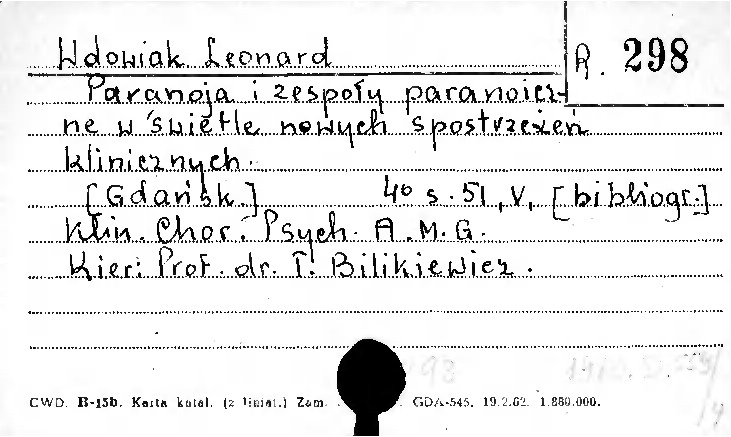 Wdowiak Leonard
R. 298
Paranoja i zespoły paranoicz-
ne w świetle nowych spostrzeżeń
klinicznych.
[Gdańsk.] 4° s. 51, V, [bibliogr.]
Klin. Chor. Psych. A.M.G.
Kier: Prof. dr. T. Bilikiewicz.
CWD. B-15b. Karta katal. (z liniat.) Zam. GDA-545. 19.2.62. 1.880.000.